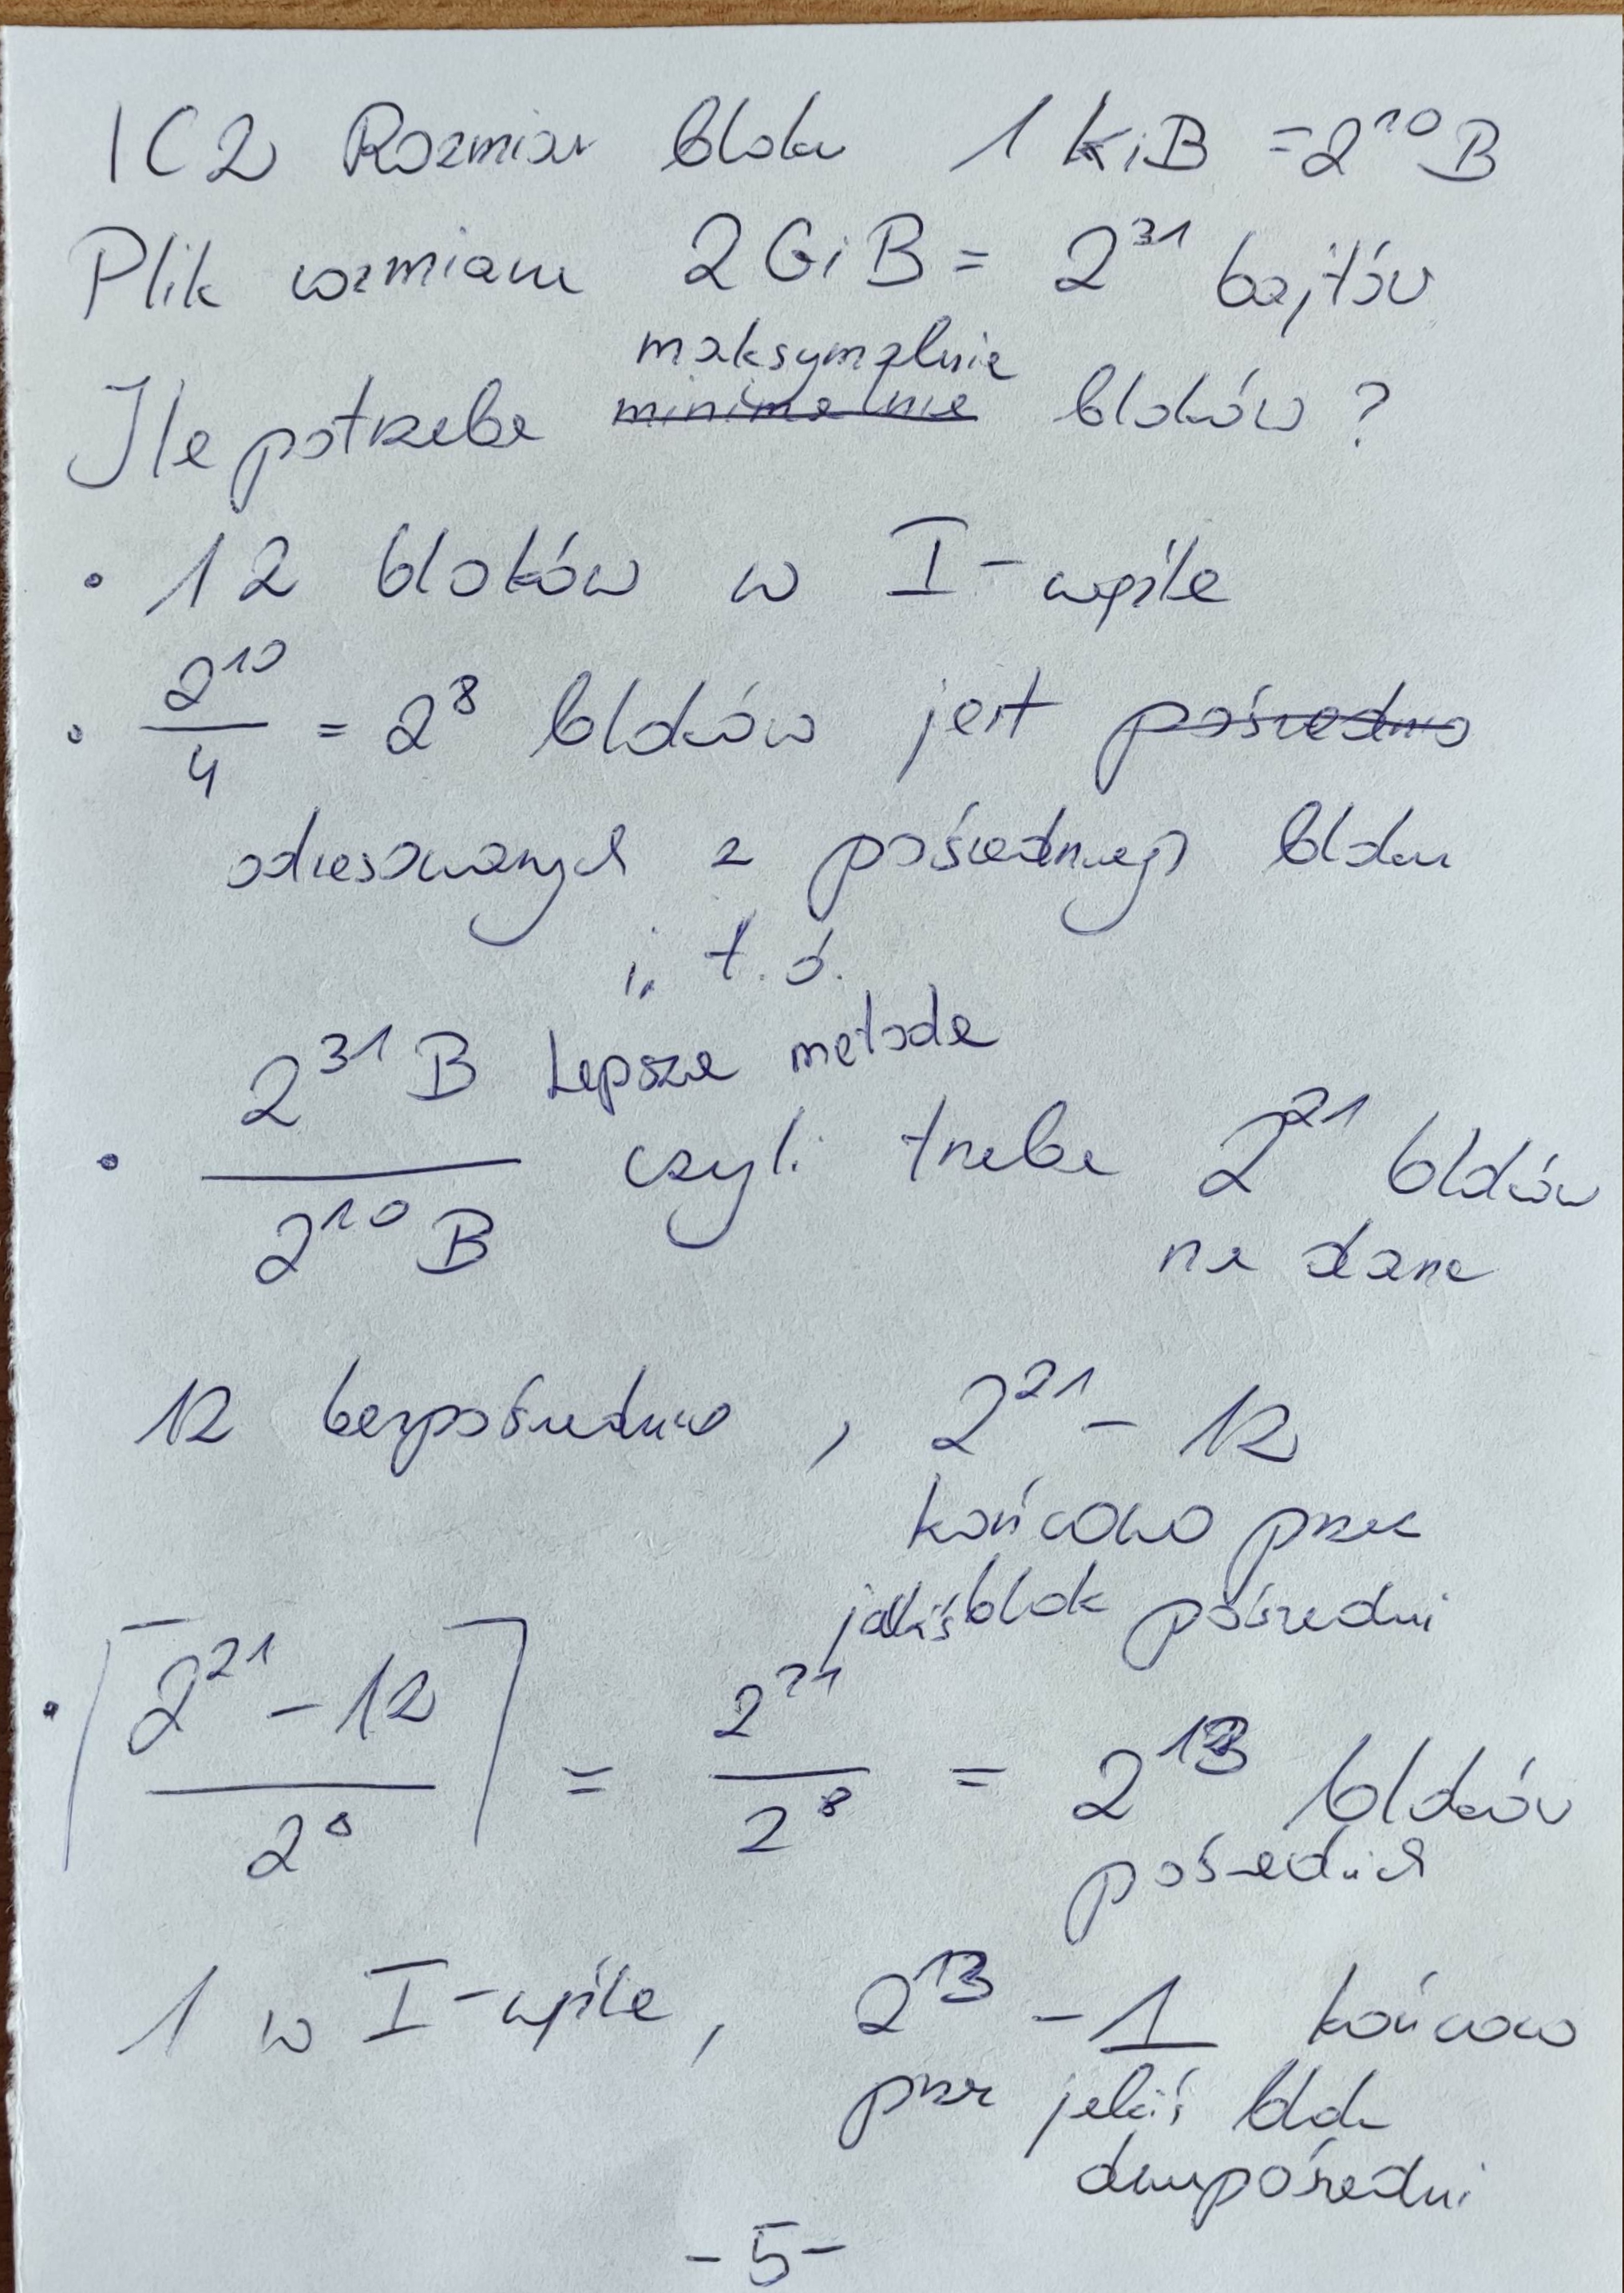 1C2 Rozmiar bloku 1 KiB = 2^10 B
Plik rozmiaru 2 GiB = 2^31 bajtów
maksymalnie
Ile potrzeba minimalnie bloków?
• 12 bloków w I-węźle
• 2^10 / 4 = 2^8 bloków jest pośrednio
adresowanych z pośredniego bloku
i. t. d.
Lepsza metoda
• 2^31 B / 2^10 B czyli trzeba 2^21 bloków
na dane
12 bezpośrednio, 2^21 - 12
końcowo przez
jakiś blok pośredni
• ⌈(2^21 - 12) / 2^8⌉ = 2^21 / 2^8 = 2^13 bloków
pośrednich
1 w I-węźle, 2^13 - 1 końcowo
przez jakiś blok
dwupośredni
- 5 -